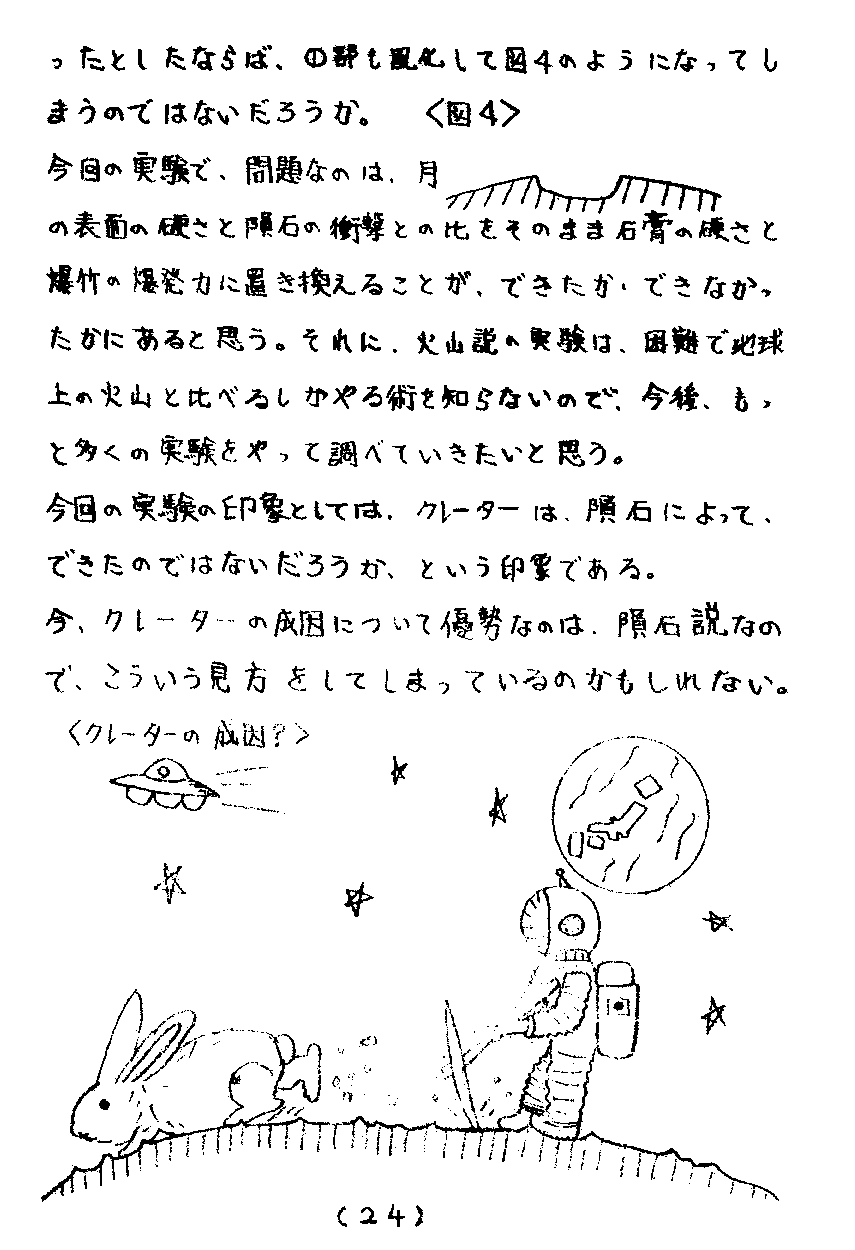 ったとしたならば、①部も風化して図4のようになってし
まうのではないだろうか。　〈図4〉
今回の実験で、問題なのは、月
の表面の硬さと隕石の衝撃との比をそのまま石膏の硬さと
爆竹の爆発力に置き換えることが、できたか・できなかっ
たかにあると思う。それに、火山説の実験は、困難で地球
上の火山と比べるしかやる術を知らないので、今後、もっ
と多くの実験をやって調べていきたいと思う。
今回の実験の印象としては、クレーターは、隕石によって、
できたのではないだろうか、という印象である。
今、クレーターの成因について優勢なのは、隕石説なの
で、こういう見方をしてしまっているのかもしれない。
〈クレーターの成因?〉
(24)